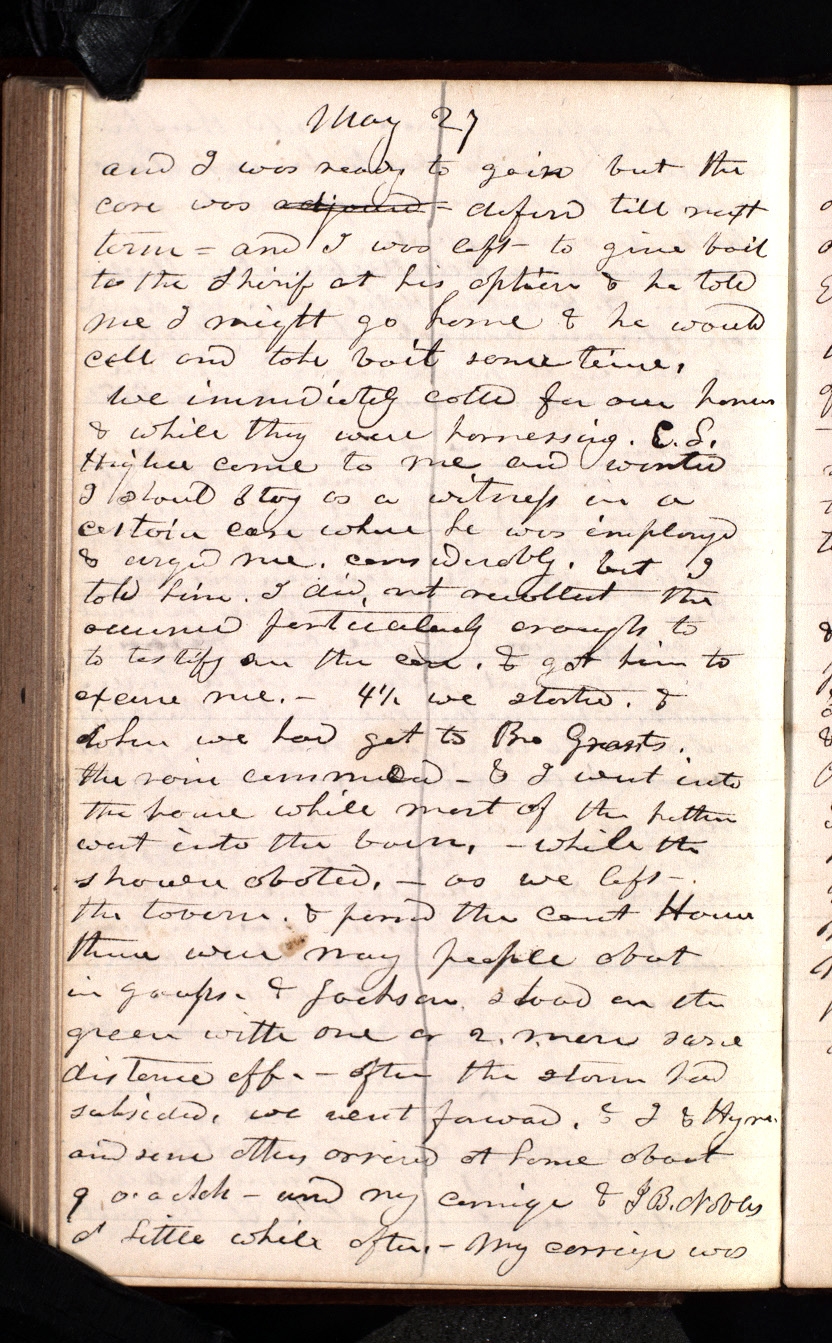 May 27
and I was ready to go in but the
case was adjourned = deferd till next
term = and I was left to give bail
to the Sherif at his option & he told
me I might go home & he would
call and take bail some time.
We immidietly called for our horses
& while they were harnessing. C. S.
Higbee came to me and wanted
I should stay as a witness in a
certain case where he was employed
& urged me. considerably. but I
told him. I did not recollect the
occurred perticularly enough to
to testify on the case. & got him to
excuse me. — 4½ we started. &
when we had got to Bro Grants.
the rain commenced - & I went into
the house while most of the
went into the barn. - while the
shower abated. — as we left -
the tavern. & passed the court House
there were many people about
in groups. & Jackson stood on the
green with one or 2. more some
distance off. — after the storm had
subsided. we went forward. & I & Hyrum
and some others arrived at home about
9 o.clock - and my carriage & J B. Nobles
a little while after. - My carriage was